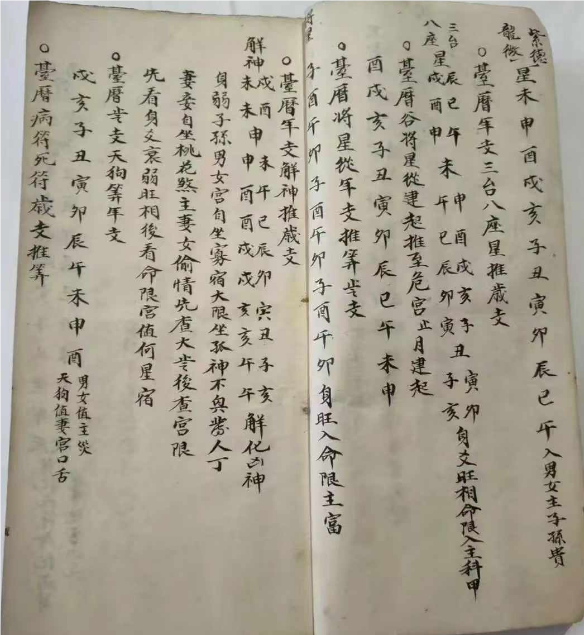 紫德
龍微 星未申酉戌亥子丑寅卯辰巳午入男女主子孫貴
○臺曆年支三台八座星推歲支
三台辰巳午未申酉戌亥子丑寅卯
八座星戌酉申未午巳辰卯寅丑子亥
身爻旺相命限入主科甲
○臺曆谷將星從建起推至危宮止月建起
酉戌亥子丑寅卯辰巳午未申
○臺曆將星從年支推算歲支
將星子酉午卯子酉午卯子酉午卯身旺入命限主富
○臺曆年支解神推歲支
解神戌酉申未午巳辰卯寅丑子亥
未未申申酉酉戌戌亥亥午午解化凶神
身弱子孫男女宮自坐寡宿大限坐孤神不與人丁
妻妾自坐桃花煞主妻女偷情先查大歲後查宮限
先看身爻衰弱旺相後看命限宮值何星宿
○臺曆歲支天狗筭年支
戌亥子丑寅卯辰午未申酉
男女值主災
天狗值妻宮口舌
○臺曆病符死符歲支推筭